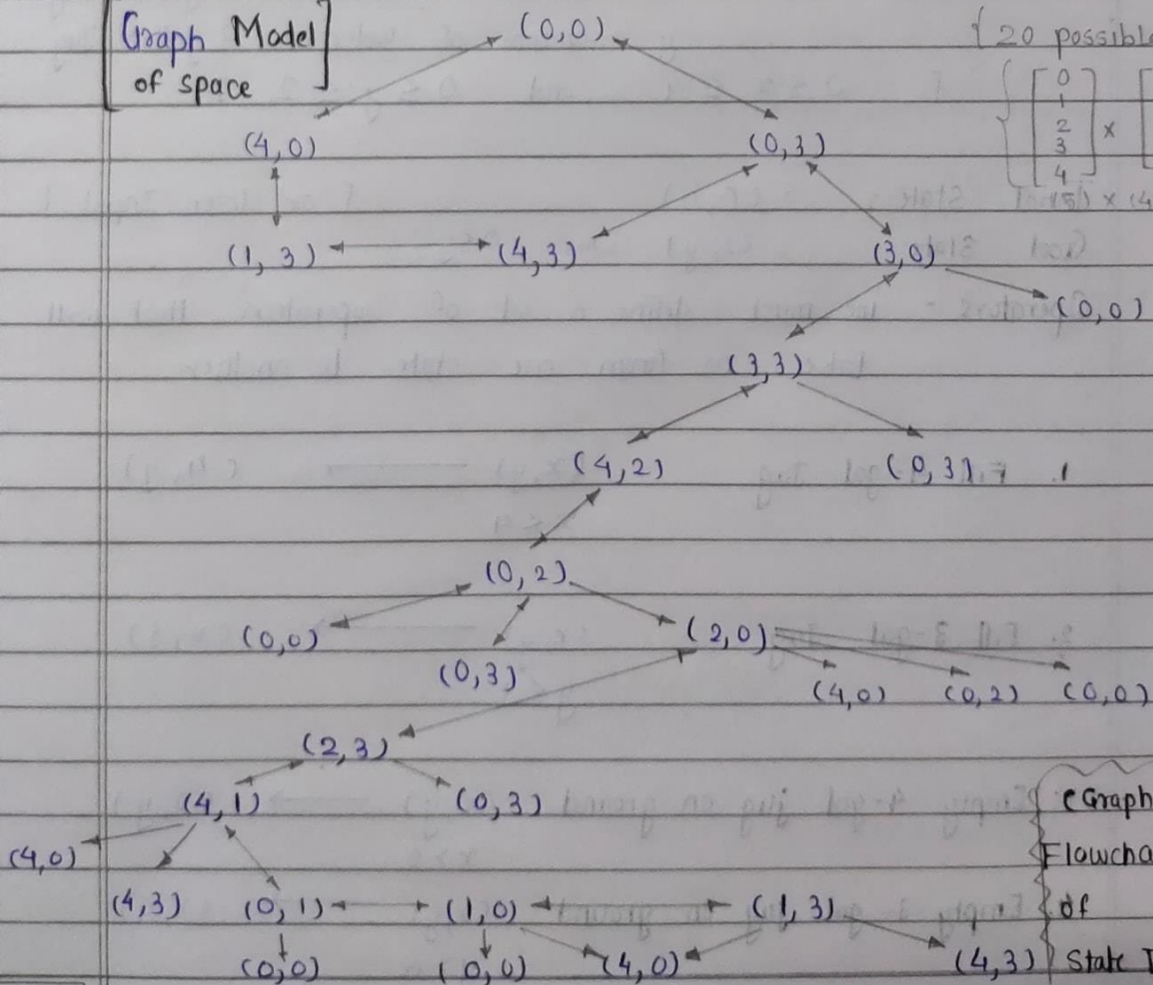 Graph Model
of space
(0,0)
{20 possible
0
1
2
3
4
×
(5) × (4
(4,0)
(0,3)
(1,3)
(4,3)
(3,0)
(0,0)
(3,3)
(4,2)
(0,3)
(0,2)
(0,0)
(0,3)
(2,0)
(4,0)
(0,2)
(0,0)
(2,3)
(4,1)
(0,3)
(4,0)
(4,3)
(0,1)
(1,0)
(1,3)
(0,0)
(0,0)
(4,0)
(4,3)
(Graph
Flowcha
of
State